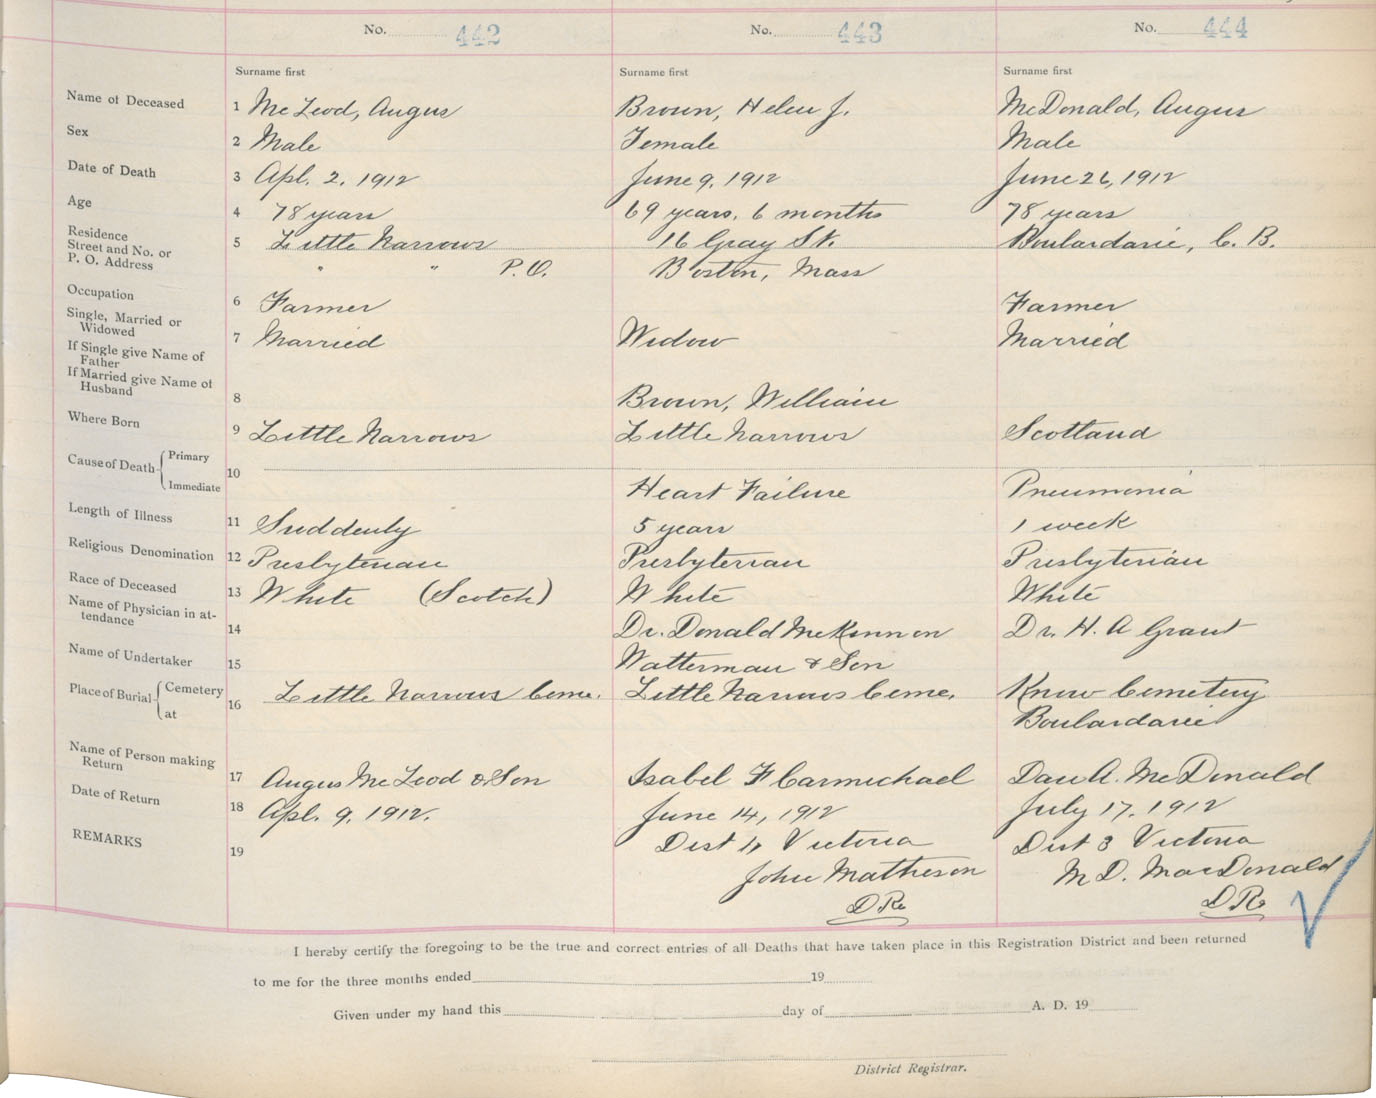 No. 442 No. 443 No. 444
Surname first Surname first Surname first
Name of Deceased 1 McLeod, Angus Brown, Helen J. McDonald, Angus
Sex 2 Male Female Male
Date of Death 3 Apl. 2, 1912 June 9, 1912 June 26, 1912
Age 4 78 years 69 years, 6 months 78 years
Residence
Street and No. or 5 Little Narrows 16 Gray St. Boulardarie, C. B.
P. O. Address " " P.O. Boston, Mass
Occupation 6 Farmer Farmer
Single, Married or
Widowed 7 Married Widow Married
If Single give Name of
Father
If Married give Name of
Husband 8 Brown, William
Where Born 9 Little Narrows Little Narrows Scotland
Cause of Death Primary 10
Immediate Heart Failure Pneumonia
Length of Illness 11 Suddenly 5 years 1 week
Religious Denomination 12 Presbyterian Presbyterian Presbyterian
Race of Deceased 13 White (Scotch) White White
Name of Physician in at-
tendance 14 Dr. Donald McKinnon Dr. H. A Grant
Name of Undertaker 15 Watterman & Son
Place of Burial Cemetery 16 Little Narrows Ceme. Little Narrows Ceme. Know Cemetery
at Boulardarie
Name of Person making
Return 17 Angus McLeod & Son Isabel F Carmichael Dan A. McDonald
Date of Return 18 Apl. 9, 1912. June 14, 1912 July 17, 1912
REMARKS 19 Dist Victoria Dist 3 Victoria
John Matheson M D. MacDonald
D.R. D.R.
I hereby certify the foregoing to be the true and correct entries of all Deaths that have taken place in this Registration District and been returned
to me for the three months ended 19
Given under my hand this day of A. D. 19
District Registrar.